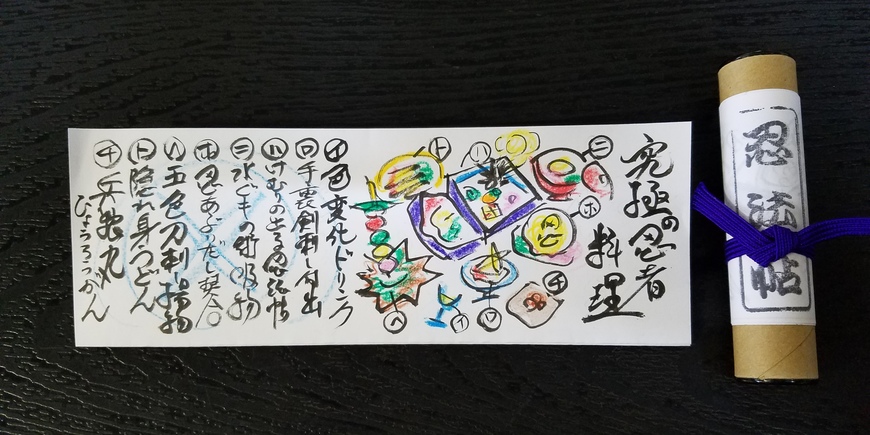 忍法帖
究極の忍者
料理
ニ
ハ
ト
ホ
チ
ロ
イ
ヘ
イ色変化ドリンク
ロ手裏剣刺し付出
ハけむりの
ニ水ぐもの術吸物
ホ忍あぶりだし
ヘ五色刀刺し揚物
ト隠れ身うどん
チ兵糧丸
ひょうろうがん